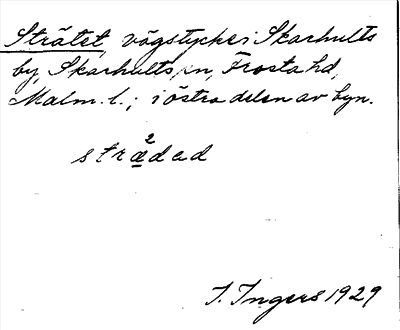 Strätet, vägstycke i Skarhults
by, Skarhults sn, Frosta hd,
Malm. l.; i östra delen av byn.
2
strædəd
I. Ingers 1929